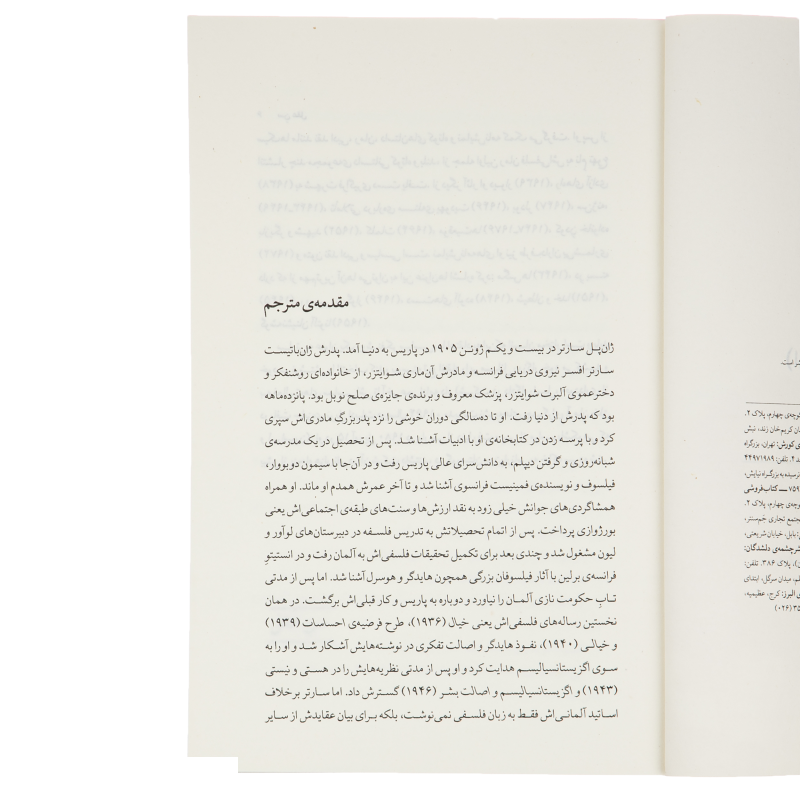 مقدمه‌ی مترجم
ژان‌پل سارتر در بیست و یکم ژوئن ۱۹۰۵ در پاریس به دنیا آمد. پدرش ژان‌باتیست
سارتر افسر نیروی دریایی فرانسه و مادرش آن‌ماری شوایتزر، از خانواده‌ای روشنفکر و
دخترعموی آلبرت شوایتزر، پزشک معروف و برنده‌ی جایزه‌ی صلح نوبل بود. پانزده‌ماهه
بود که پدرش از دنیا رفت. او تا ده‌سالگی دوران خوشی را نزد پدربزرگِ مادری‌اش سپری
کرد و با پرسه زدن در کتابخانه‌ی او با ادبیات آشنا شد. پس از تحصیل در یک مدرسه‌ی
شبانه‌روزی و گرفتن دیپلم، به دانش‌سرای عالی پاریس رفت و در آن‌جا با سیمون دوبووار،
فیلسوف و نویسنده‌ی فمینیست فرانسوی آشنا شد و تا آخر عمرش همدم او ماند. او همراه
همشاگردی‌های جوانش خیلی زود به نقد ارزش‌ها و سنت‌های طبقه‌ی اجتماعی‌اش یعنی
بورژوازی پرداخت. پس از اتمام تحصیلاتش به تدریس فلسفه در دبیرستان‌های لوآور و
لیون مشغول شد و چندی بعد برای تکمیل تحقیقات فلسفی‌اش به آلمان رفت و در انستیتوِ
فرانسه‌ی برلین با آثار فیلسوفان بزرگی همچون هایدگر و هوسرل آشنا شد. اما پس از مدتی
تابِ حکومت نازی آلمان را نیاورد و دوباره به پاریس و کار قبلی‌اش برگشت. در همان
نخستین رساله‌های فلسفی‌اش یعنی خیال (۱۹۳۶)، طرح فرضیه‌ی احساسات (۱۹۳۹)
و خیالی (۱۹۴۰)، نفوذ هایدگر و اصالت تفکری در نوشته‌هایش آشکار شد و او را به
سوی اگزیستانسیالیسم هدایت کرد و او پس از مدتی نظریه‌هایش را در هستی و نیستی
(۱۹۴۳) و اگزیستانسیالیسم و اصالت بشر (۱۹۴۶) گسترش داد. اما سارتر برخلاف
اساتید آلمانی‌اش فقط به زبان فلسفی نمی‌نوشت، بلکه برای بیان عقایدش از سایر
است.
کوچه‌ی چهارم، پلاک ۲.
کریم‌خان زند، نبش
ی کورش: تهران، بزرگراه
۴. تلفن: ۴۴۹۷۱۹۸۹
نرسیده به بزرگراه نیایش،
۷۵۹ — کتاب‌فروشی
کوچه‌ی چهارم، پلاک ۲.
مجتمع تجاری خزرسنتر،
بابل، خیابان شریعتی،
سرچشمه‌ی دلشدگان:
پلاک ۳۸۶. تلفن:
میدان سرگل، ابتدای
ی البرز: کرج، عظیمیه،
(۰۲۶) ۳۵